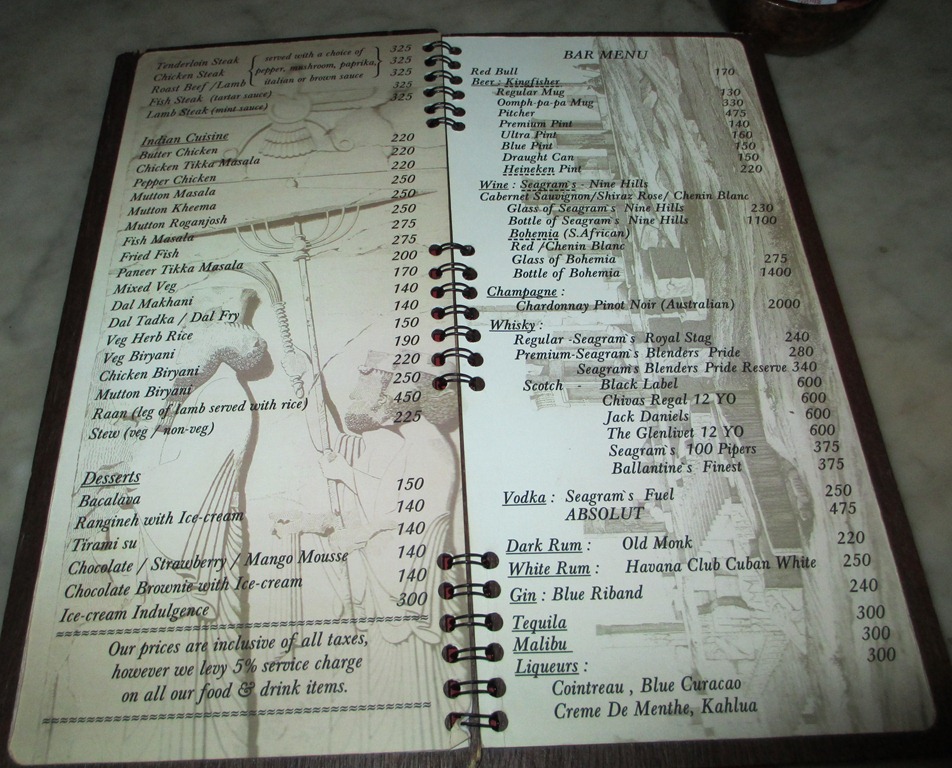 Tenderloin Steak 325
Chicken Steak 325
Roast Beef /Lamb 325
served with a choice of
pepper, mushroom, paprika,
italian or brown sauce
Fish Steak (tartar sauce) 325
Lamb Steak (mint sauce) 325
Indian Cuisine
Butter Chicken 220
Chicken Tikka Masala 220
Pepper Chicken 220
Mutton Masala 250
Mutton Kheema 250
Mutton Roganjosh 250
Fish Masala 275
Fried Fish 275
Paneer Tikka Masala 200
Mixed Veg 170
Dal Makhani 140
Dal Tadka / Dal Fry 140
Veg Herb Rice 150
Veg Biryani 190
Chicken Biryani 220
Mutton Biryani 250
Raan (leg of lamb served with rice) 450
Stew (veg / non-veg) 225
Desserts
Bacalava 150
Rangineh with Ice-cream 140
Tirami su 140
Chocolate / Strawberry / Mango Mousse 140
Chocolate Brownie with Ice-cream 140
Ice-cream Indulgence 300
Our prices are inclusive of all taxes,
however we levy 5% service charge
on all our food & drink items.
BAR MENU
Red Bull 170
Beer : Kingfisher
Regular Mug 130
Oomph-pa-pa Mug 330
Pitcher 475
Premium Pint 140
Ultra Pint 160
Blue Pint 150
Draught Can 150
Heineken Pint 220
Wine : Seagram's - Nine Hills
Cabernet Sauvignon/Shiraz Rose/ Chenin Blanc
Glass of Seagram's Nine Hills 230
Bottle of Seagram's Nine Hills 1100
Bohemia (S.African)
Red /Chenin Blanc
Glass of Bohemia 275
Bottle of Bohemia 1400
Champagne :
Chardonnay Pinot Noir (Australian) 2000
Whisky :
Regular -Seagram's Royal Stag 240
Premium-Seagram's Blenders Pride 280
Seagram's Blenders Pride Reserve 340
Scotch - Black Label 600
Chivas Regal 12 YO 600
Jack Daniels 600
The Glenlivet 12 YO 600
Seagram's 100 Pipers 375
Ballantine's Finest 375
Vodka : Seagram's Fuel 250
ABSOLUT 475
Dark Rum : Old Monk 220
White Rum : Havana Club Cuban White 250
Gin : Blue Riband 240
Tequila 300
Malibu 300
Liqueurs : 300
Cointreau , Blue Curacao
Creme De Menthe, Kahlua